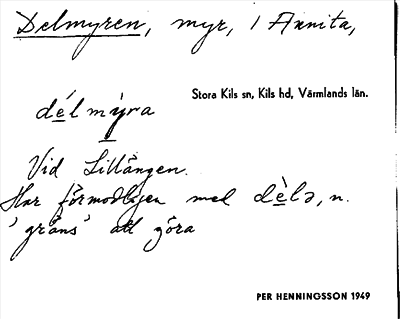 Delmyren, myr, 1 Annita,
Stora Kils sn, Kils hd, Värmlands län.
de̲´l mỳ̲ra
Vid Lillängen.
Har förmodligen med dè̲lə, n.
'gräns' att göra
PER HENNINGSSON 1949